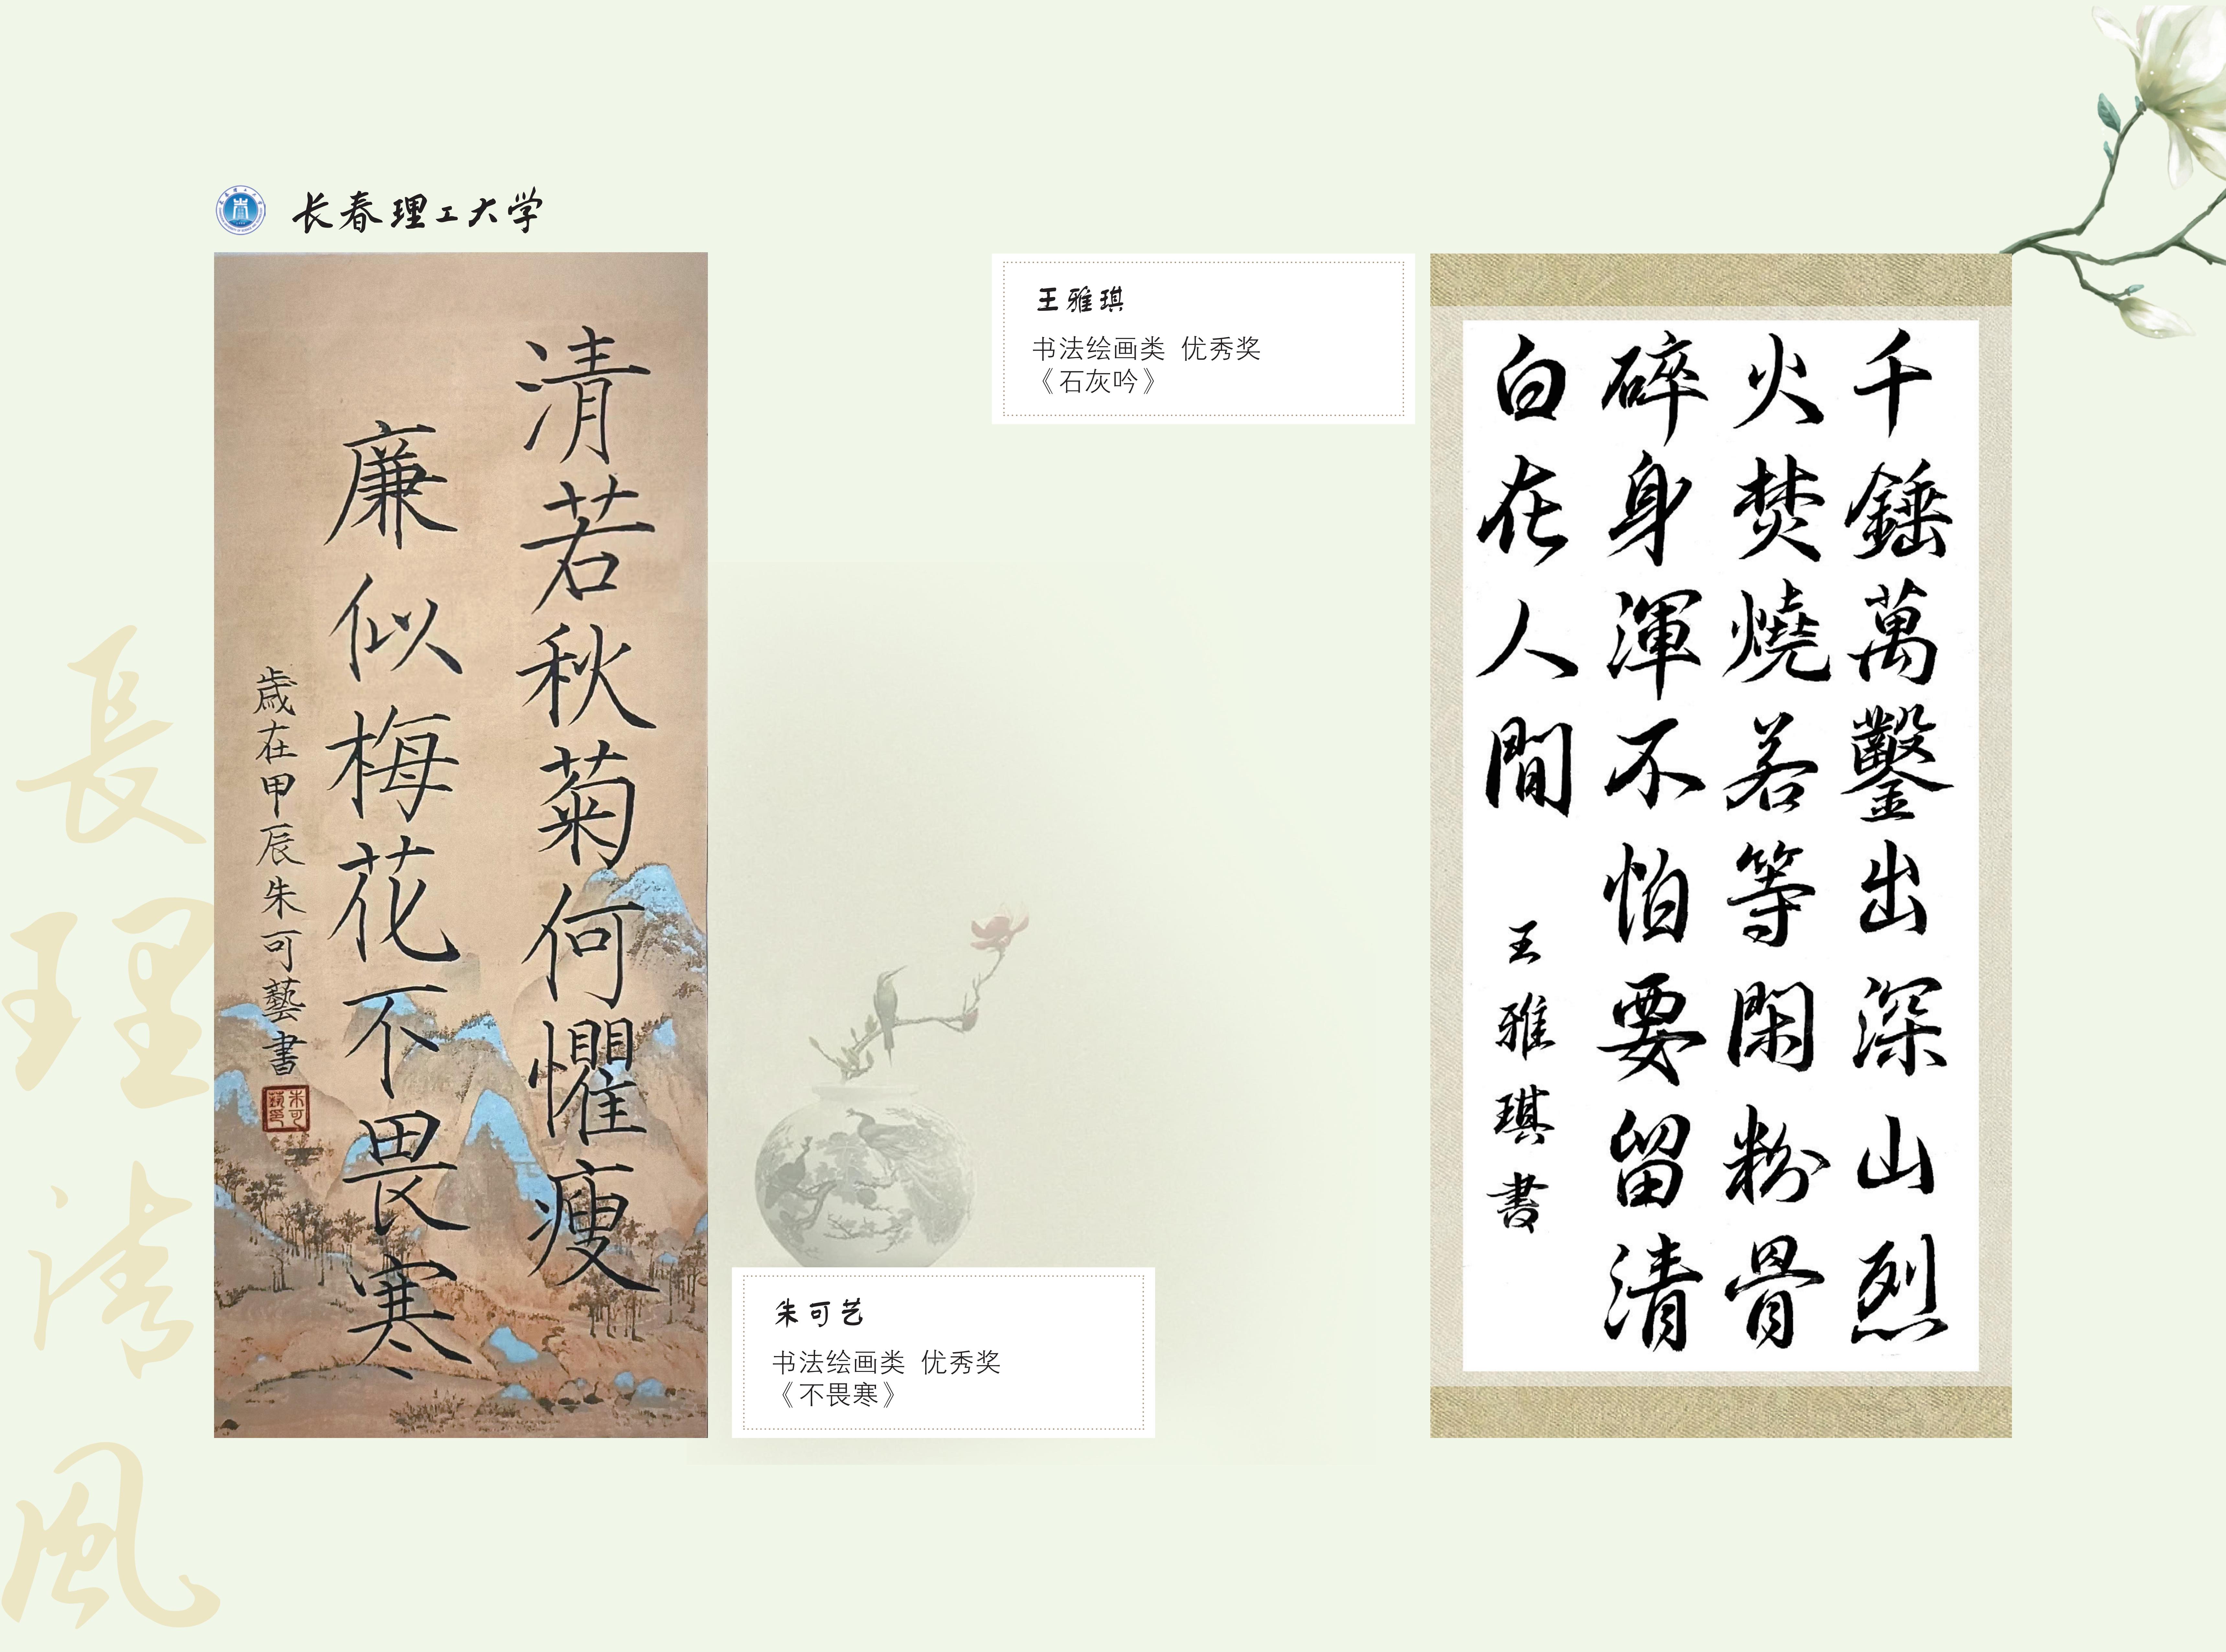 长春理工大学
清若秋菊何懼瘦
廉似梅花不畏寒
歲在甲辰朱可藝書
朱可藝印
王雅琪
书法绘画类 优秀奖
《石灰吟》
千錘萬鑿出深山烈
火焚燒若等閑粉骨
碎身渾不怕要留清
白在人間
王雅琪書
朱可艺
书法绘画类 优秀奖
《不畏寒》
長理清風